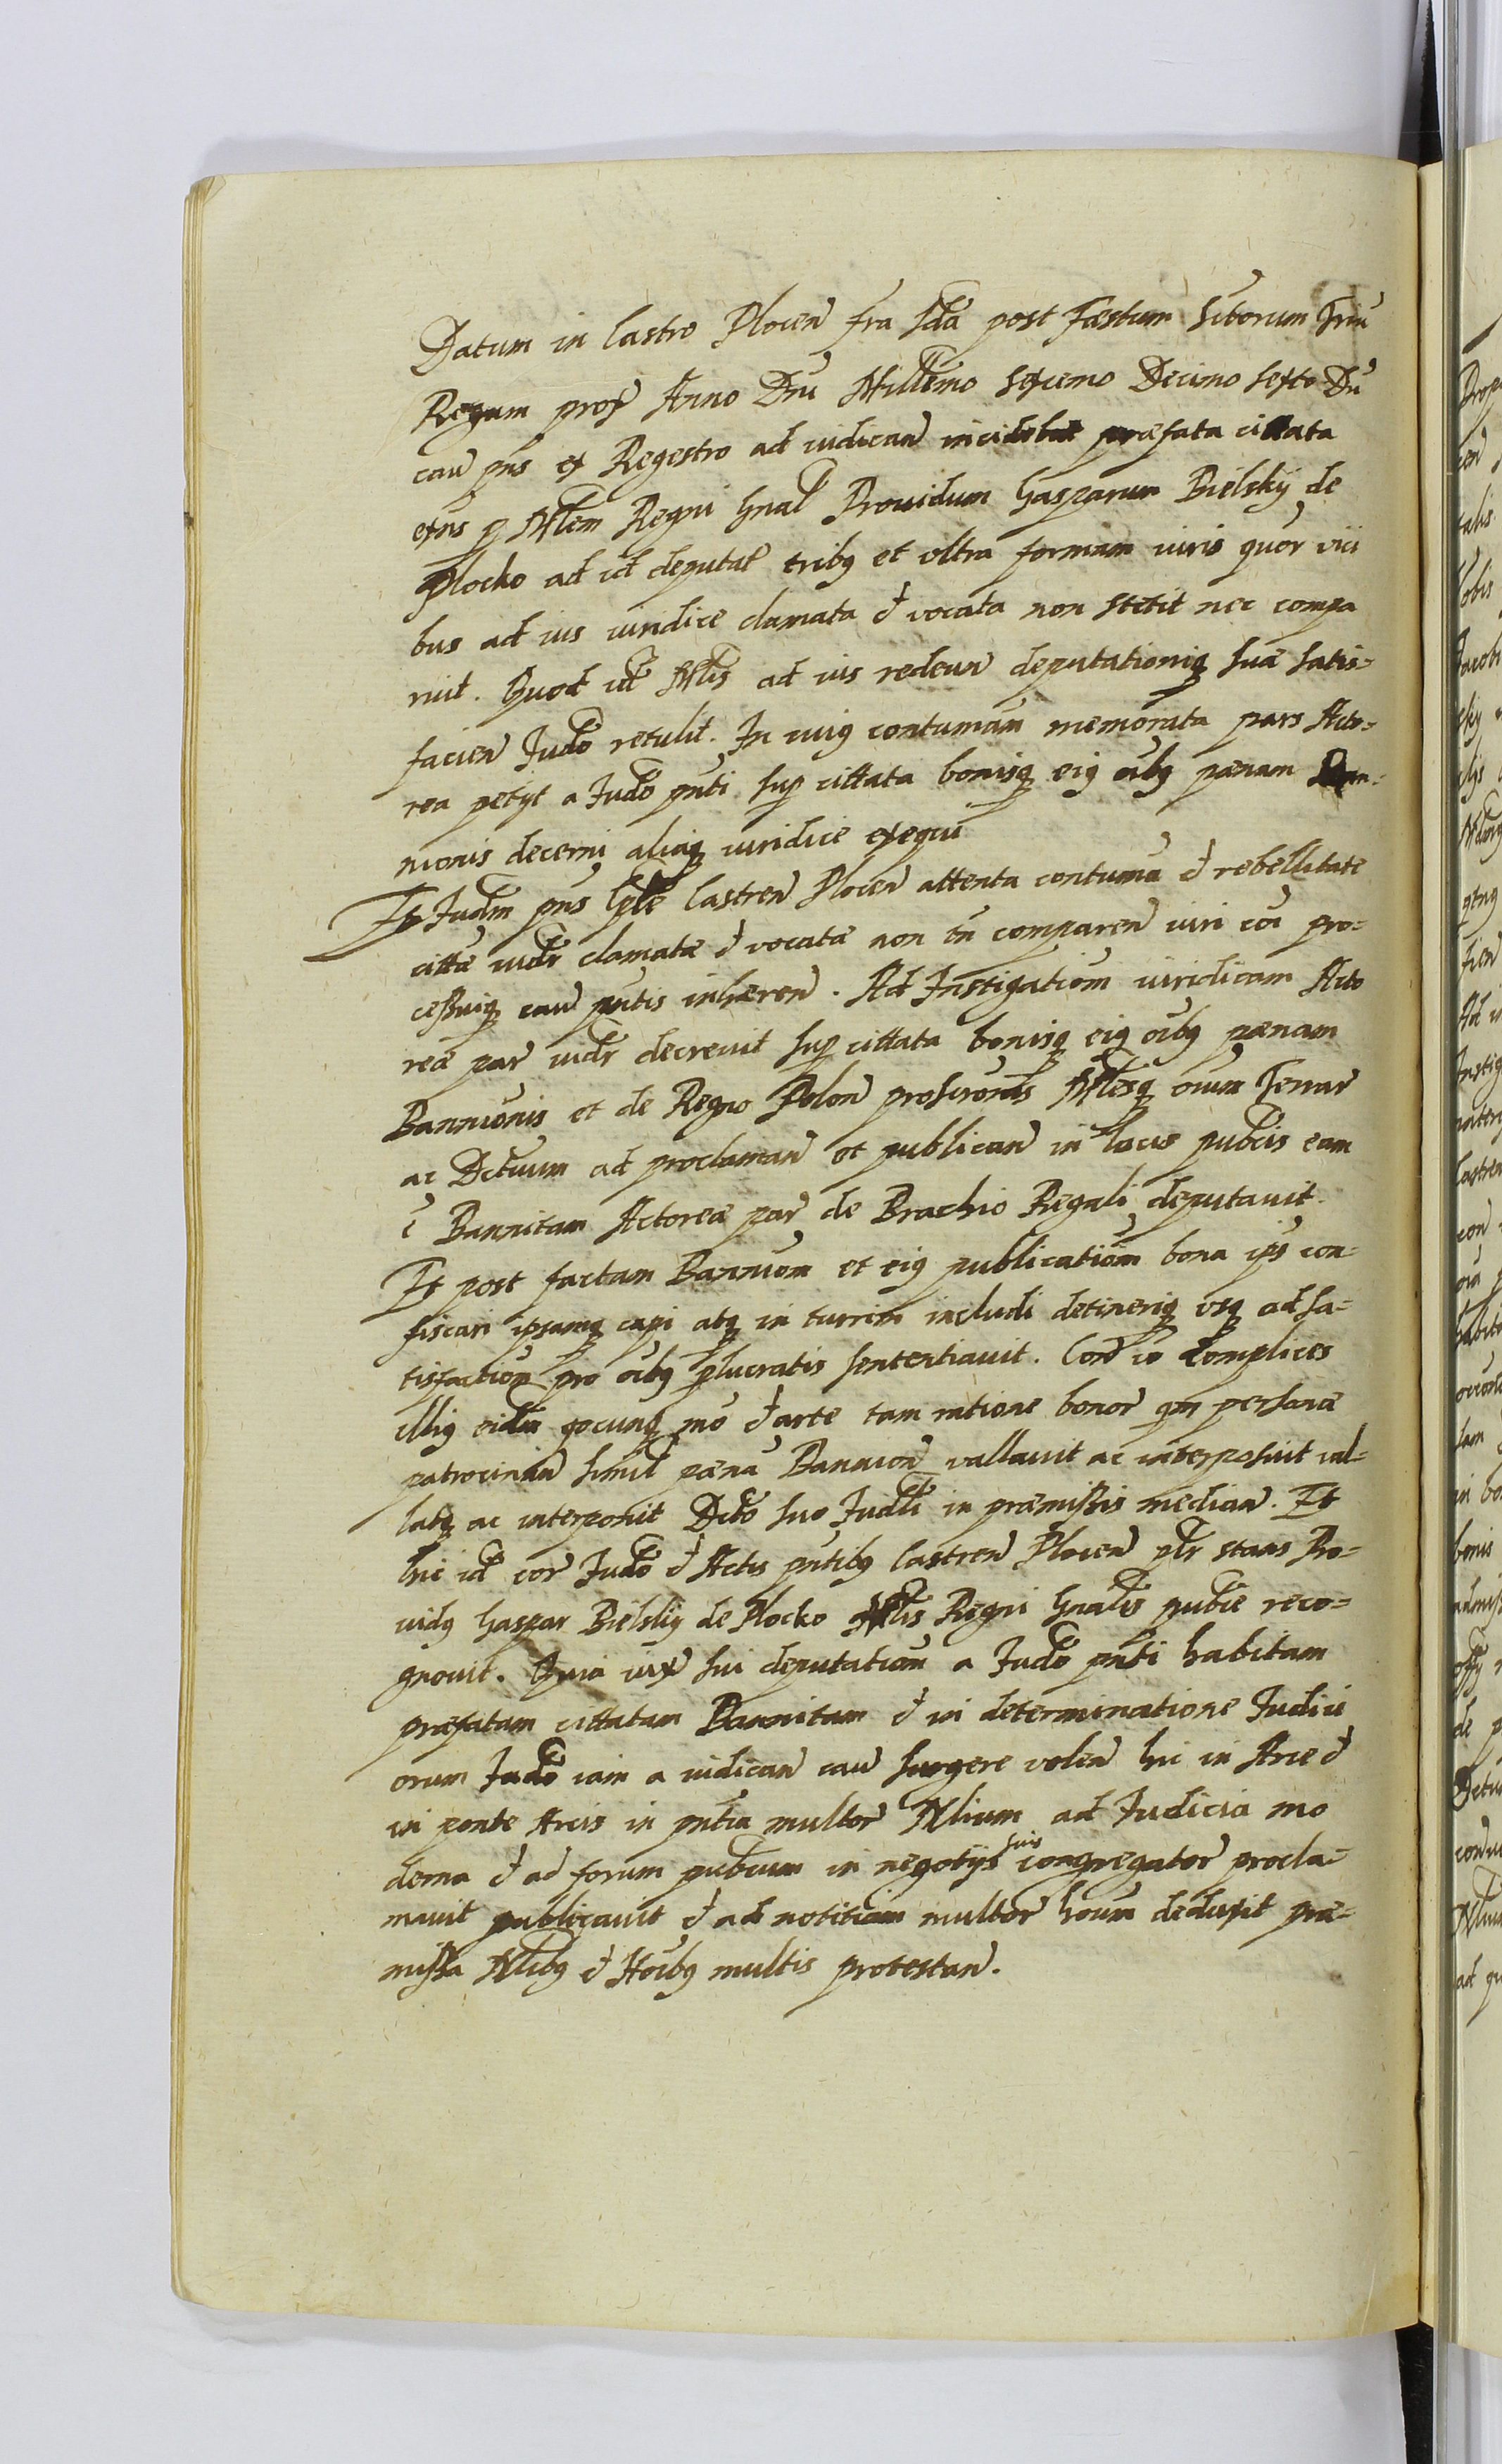 Datum in Castro Plocen fra Sda post Fæstum Sctorum Triu
Regum prox Anno Dni Millemo Sexcemo Decimo Sexto Du
cau pns ex Regestro ad iudican incidebat præfata cittata
exns p Mlem Regni Gnal Prouidum Gasparum Bielsky de
Plocko ad id deputat tribq et vltra formam iuris quor vici
bus ad ius iuridice clamata et vocata non stetit nec compa
ruit. Quod id Mlis ad ius redeun deputationiq suæ satis=
facien Judo retulit. In cuiq contumam memorata pars Acto=
rea petyt a Judo pnti sup cittata bonisq eiq oibq pænam Ban=
nionis decerni aliaq iuridice exequi
Et Judm pns Cple Castren Plocen attenta contuma et rebellitate
cittæ iudr clamatæ et vocatæ non tn comparen iuri coi pro=
cessuiq cau pntis inhæren. Ad Instigatiom iuridicam Acto
reæ par iudr decreuit sup cittata bonisq eiq oibq pænam
Bannionis et de Regno Polon proscronis Mlesq oium Terrar
ac Dctuum ad proclaman et publican in locis pubcis eam
Bannitam Actoreæ par de Brachio Regali deputauit.
Et post factam Banniom et eiq publicatiom bona ips con=
fiscari ipsamq capi atq in turrim includi detineriq vsq ad sa=
tisfactiom pro oibq plucratis sententiauit. Con io Complices
illiq eidm qocunq mo et arte tam ratione bonor qm personæ
patrocinan simil pæna Bannion vallauit ac interposuit val=
latq ac interponit Dcto suo Judli in præmissis median. Et
hic id cor Judo et Actis pntibq Castren Plocen plr stans Pro=
uidq Gaspar Bielsky de Plocko Mlis Regni Gnalis pubce reco=
gnouit. Quia iux sui deputatiom a Judo pnti habitam
præfatam cittatam Bannitam et in determinatione Judici
orum Judo iam a iudican cau surgere volen hic in Arce et
in ponte Arcis in pntia multor Nlium ad Judicia mo
derna et ad forum pubcum in negotijs suis congregator procla=
mauit publicauit et ad notitiam multor houm deduxit præ=
missa Nlibq et Hoibq multis protestan.